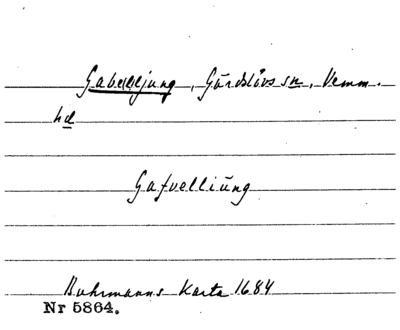 Gabeljung, Gärdslövs sn, Vemm.
hd
Gafvelliüng
Buhrmanns Karta 1684
Nr 5864.